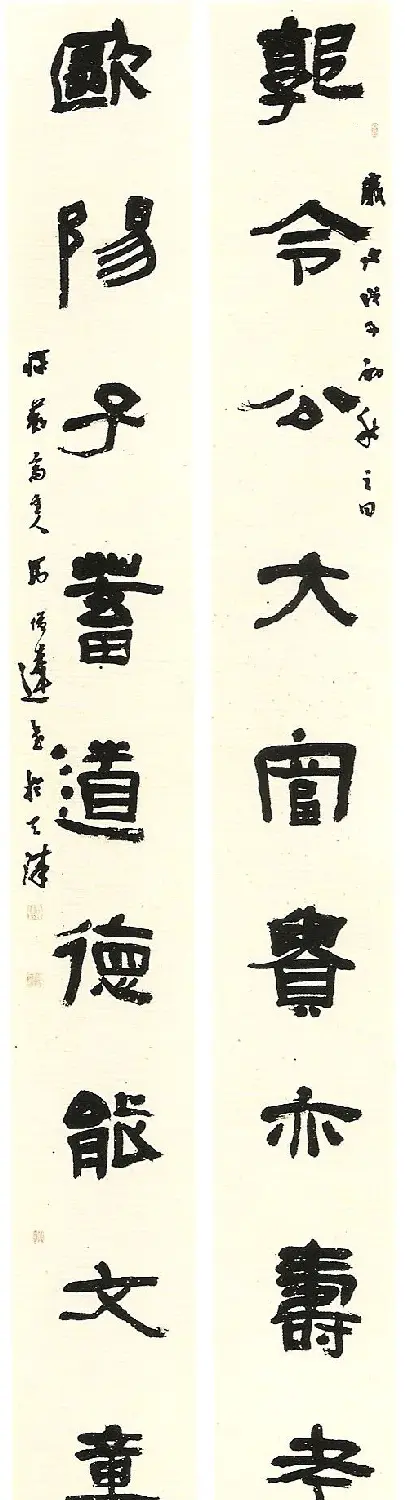 歲次戊子初秋之日
郭令公大富貴亦壽考
歐陽子蓄道德能文章
齋主人馬達書於天津